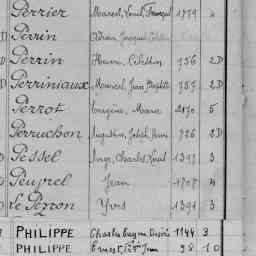 Perrier Marcel, Louis, François 1779 4
D Perrin Adrien, Jacques
Perrin Henri, Célestin 756 2D
D Perriniaux Marcel, Jean Baptiste 757 2D
Perrot Eugène, Marie 2170 5
Perruchon Augustin, Joseph, Jean 726 2D
Pessel Ange, Charles, Louis 1397 3
Peuprel Jean 1707 4
D Le Pezron Yves 1391 3
PHILIPPE Charles Eugène Désiré 1144 3
PHILIPPE Ernest Jean 98 10